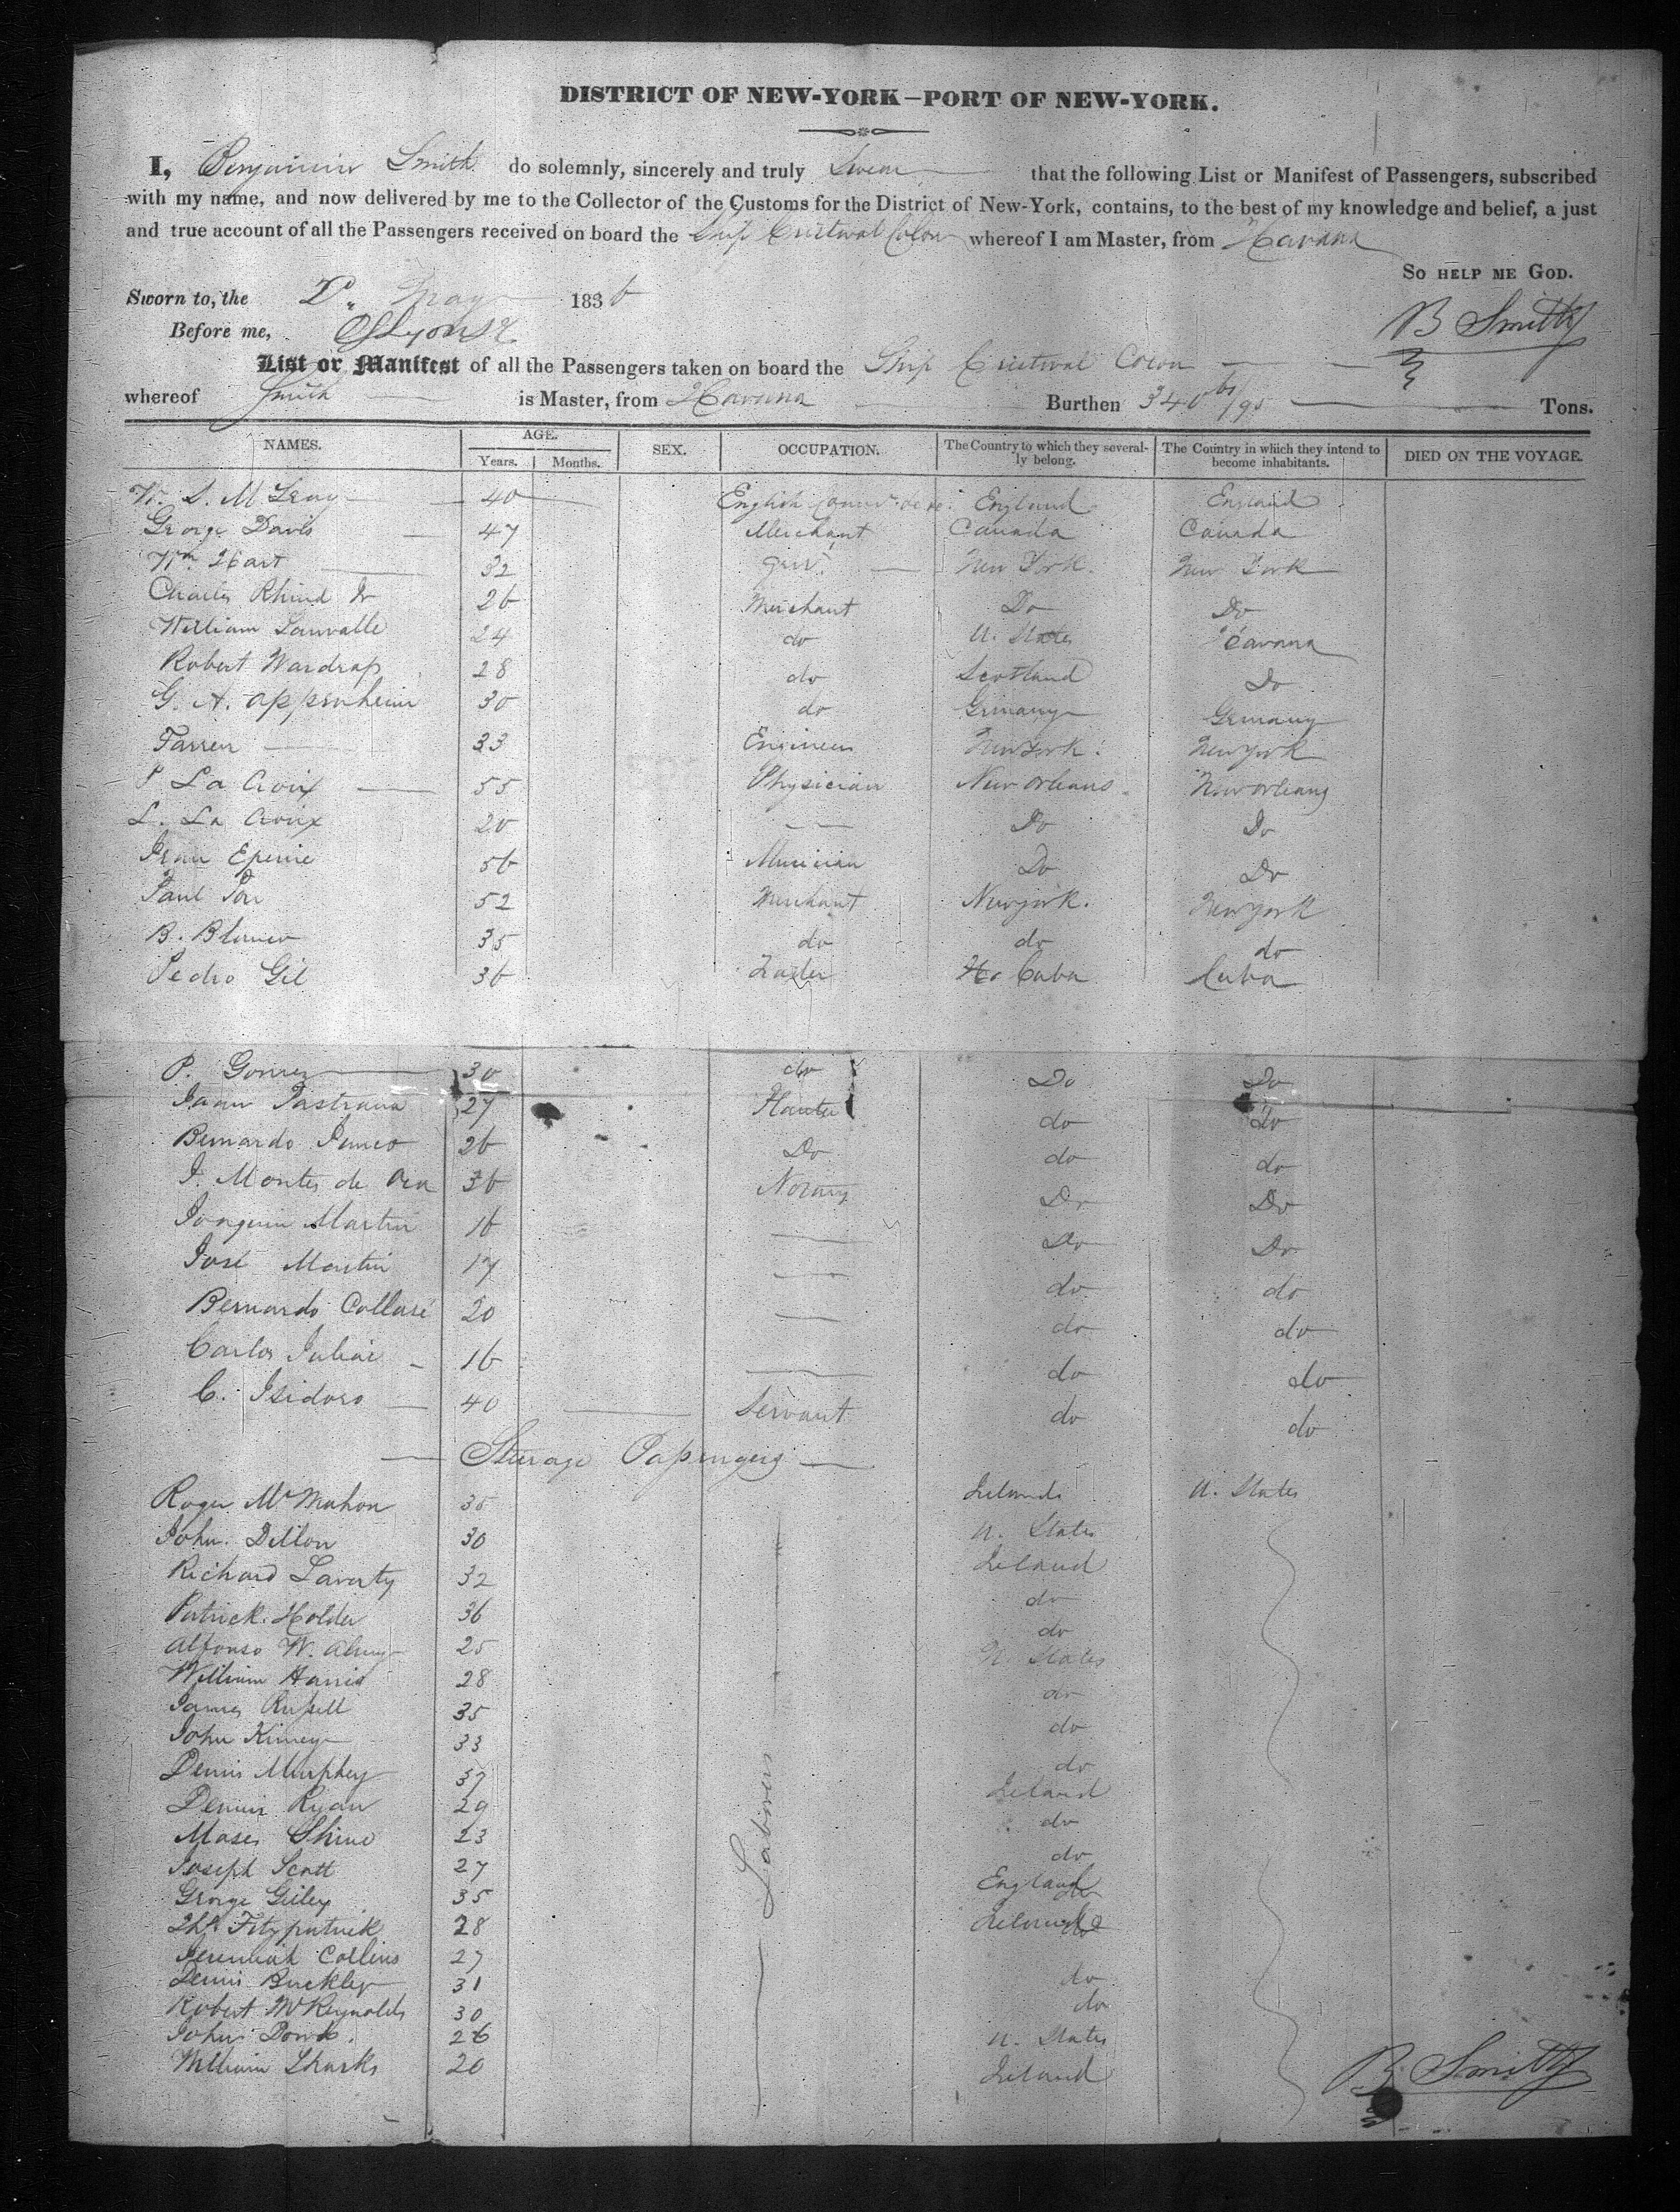 DISTRICT OF NEW-YORK—PORT OF NEW-YORK.
I, Benjamin Smith do solemnly, sincerely and truly Swear that the following List or Manifest of Passengers, subscribed
with my name, and now delivered by me to the Collector of the Customs for the District of New-York, contains, to the best of my knowledge and belief, a just
and true account of all the Passengers received on board the Ship Cristoval Colon whereof I am Master, from Havana
SO HELP ME GOD.
Sworn to, the May 1836
B Smith
Before me,
List or Manifest of all the Passengers taken on board the Ship Cristoval Colon
whereof Smith is Master, from Havana Burthen 340 /95 Tons.
NAMES. AGE. Years. Months. SEX. OCCUPATION. The Country to which they severally belong. The Country in which they intend to become inhabitants. DIED ON THE VOYAGE.
40 English England England
George Davis 47 Merchant Canada Canada
Wm Hart 32 New York. New York
Charles Rhind Jr 26 Merchant Do Do
William Lanvalle 24 do U. States Havana
Robert Wardrop 28 do Scotland Do
G. A. Oppenheim 30 do Germany Germany
Farren 33 Engineer New York. New York
P La Croix 55 Physician New Orleans New Orleans
L. La Croix 20 Do Do
56 Musician Do Do
Paul 52 Merchant New york. New york
B. Blanco 35 do do do
Pedro Gil 36 Trader Cuba Cuba
P. Gomez 30 do Do Do
Juan Pastrana 27 Planter do Do
Bernardo 26 Do do do
J. Montes de Oca 36 Notary Do Do
Joaquin Martin 16 Do Do
José Martin 17 do do
Bernardo 20 do do
Carlos 16 do do
C. Isidoro 40 Servant do do
Steerage Passengers
Roger McMahon 35 Ireland U. States
John Dillon 30 U. States
Richard Laverty 32 Ireland
Patrick Holder 36 do
Alfonso W. 25 do
William Harris 28 U. States
James Russell 35 do
John Kinney 33 do
Dennis Murphey 37 do
Dennis Ryan 29 Ireland
Moses Shine 23 do
Joseph Scott 27 do
George Giley 35 England
Fitzpatrick 28 Ireland
Jeremiah Collins 27
Dennis Buckley 31 do
Robert McReynolds 30 do
John 26 U. States
William Sharks 20 Ireland
Laborers
B. Smith